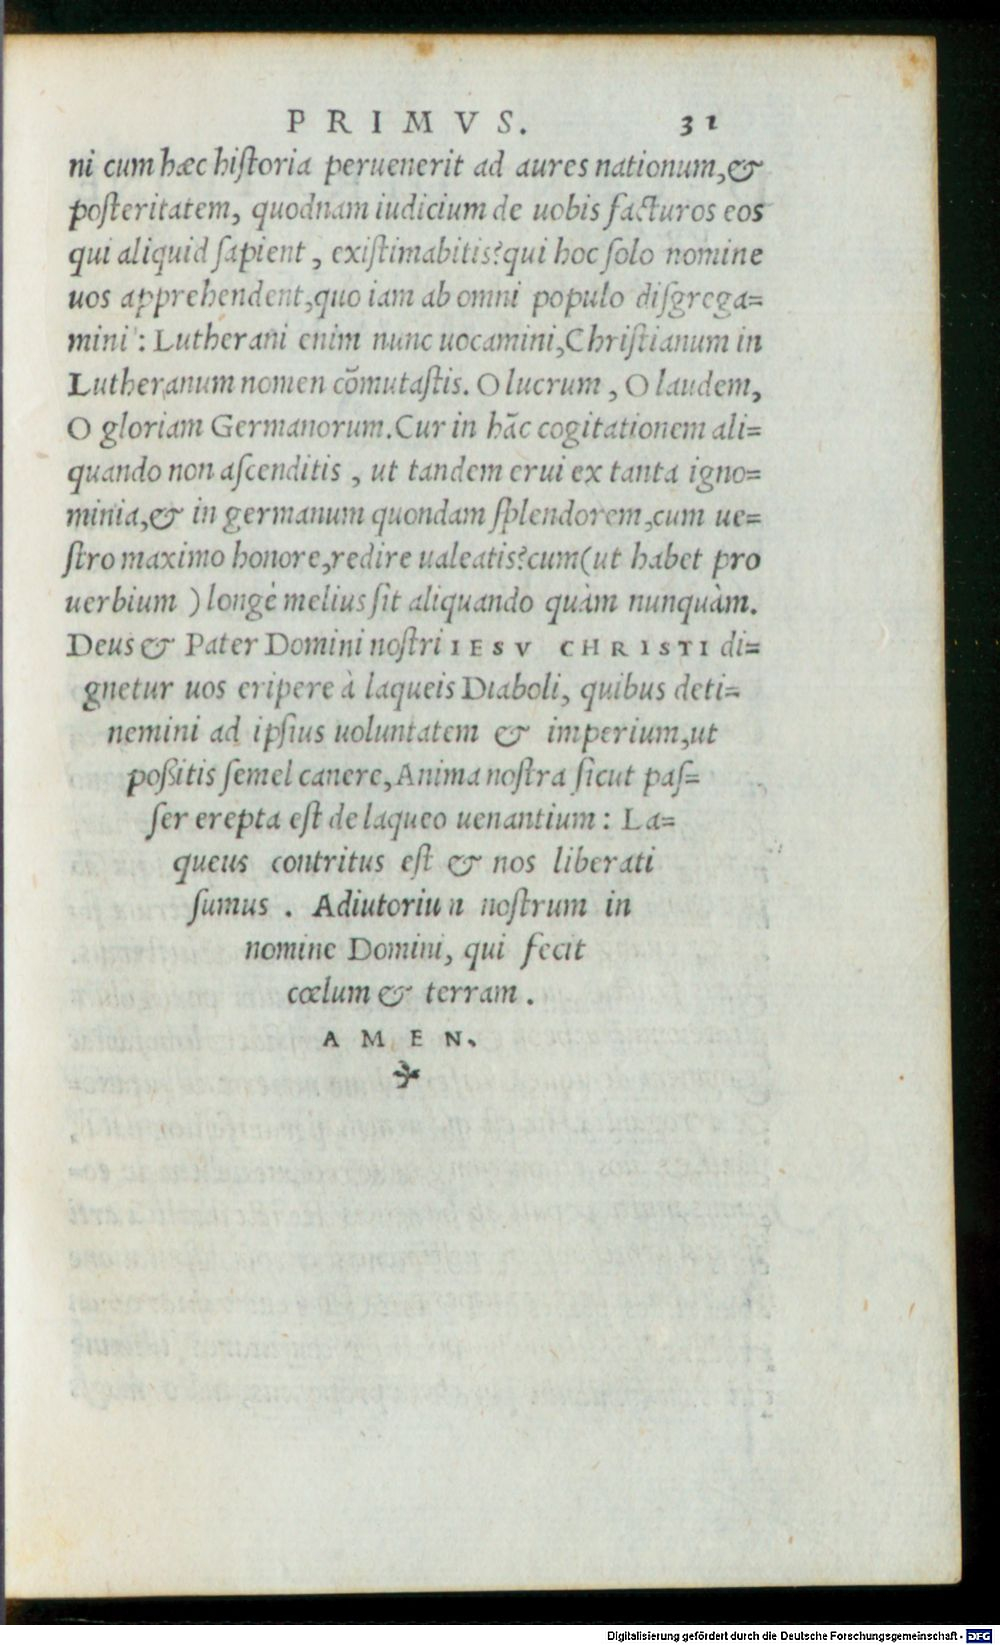 PRIMVS. 31
ni cum hæc hiſtoria peruenerit ad aures nationum,&
poſteritatem, quodnam iudicium de uobis facturos eos
qui aliquid ſapient, exiſtimabitis? qui hoc ſolo nomine
uos apprehendent, quo iam ab omni populo diſgrega=
mini: Lutherani enim nunc uocamini, Chriſtianum in
Lutheranum nomen cōmutaſtis. O lucrum, O laudem,
O gloriam Germanorum. Cur in hāc cogitationem ali=
quando non aſcenditis, ut tandem erui ex tanta igno=
minia,& in germanum quondam ſplendorem, cum ue=
ſtro maximo honore, redire ualeatis? cum (ut habet pro
uerbium) longè melius ſit aliquando quàm nunquàm.
Deus & Pater Domini noſtri IESV CHRISTI di=
gnetur uos eripere à laqueis Diaboli, quibus deti=
nemini ad ipſius uoluntatem & imperium, ut
poßitis ſemel canere, Anima noſtra ſicut paſ=
ſer erepta eſt de laqueo uenantium: La=
queus contritus eſt & nos liberati
ſumus. Adiutoriun noſtrum in
nomine Domini, qui fecit
cœlum & terram.
AMEN.
Digitalisierung gefördert durch die Deutsche Forschungsgemeinschaft - DFG